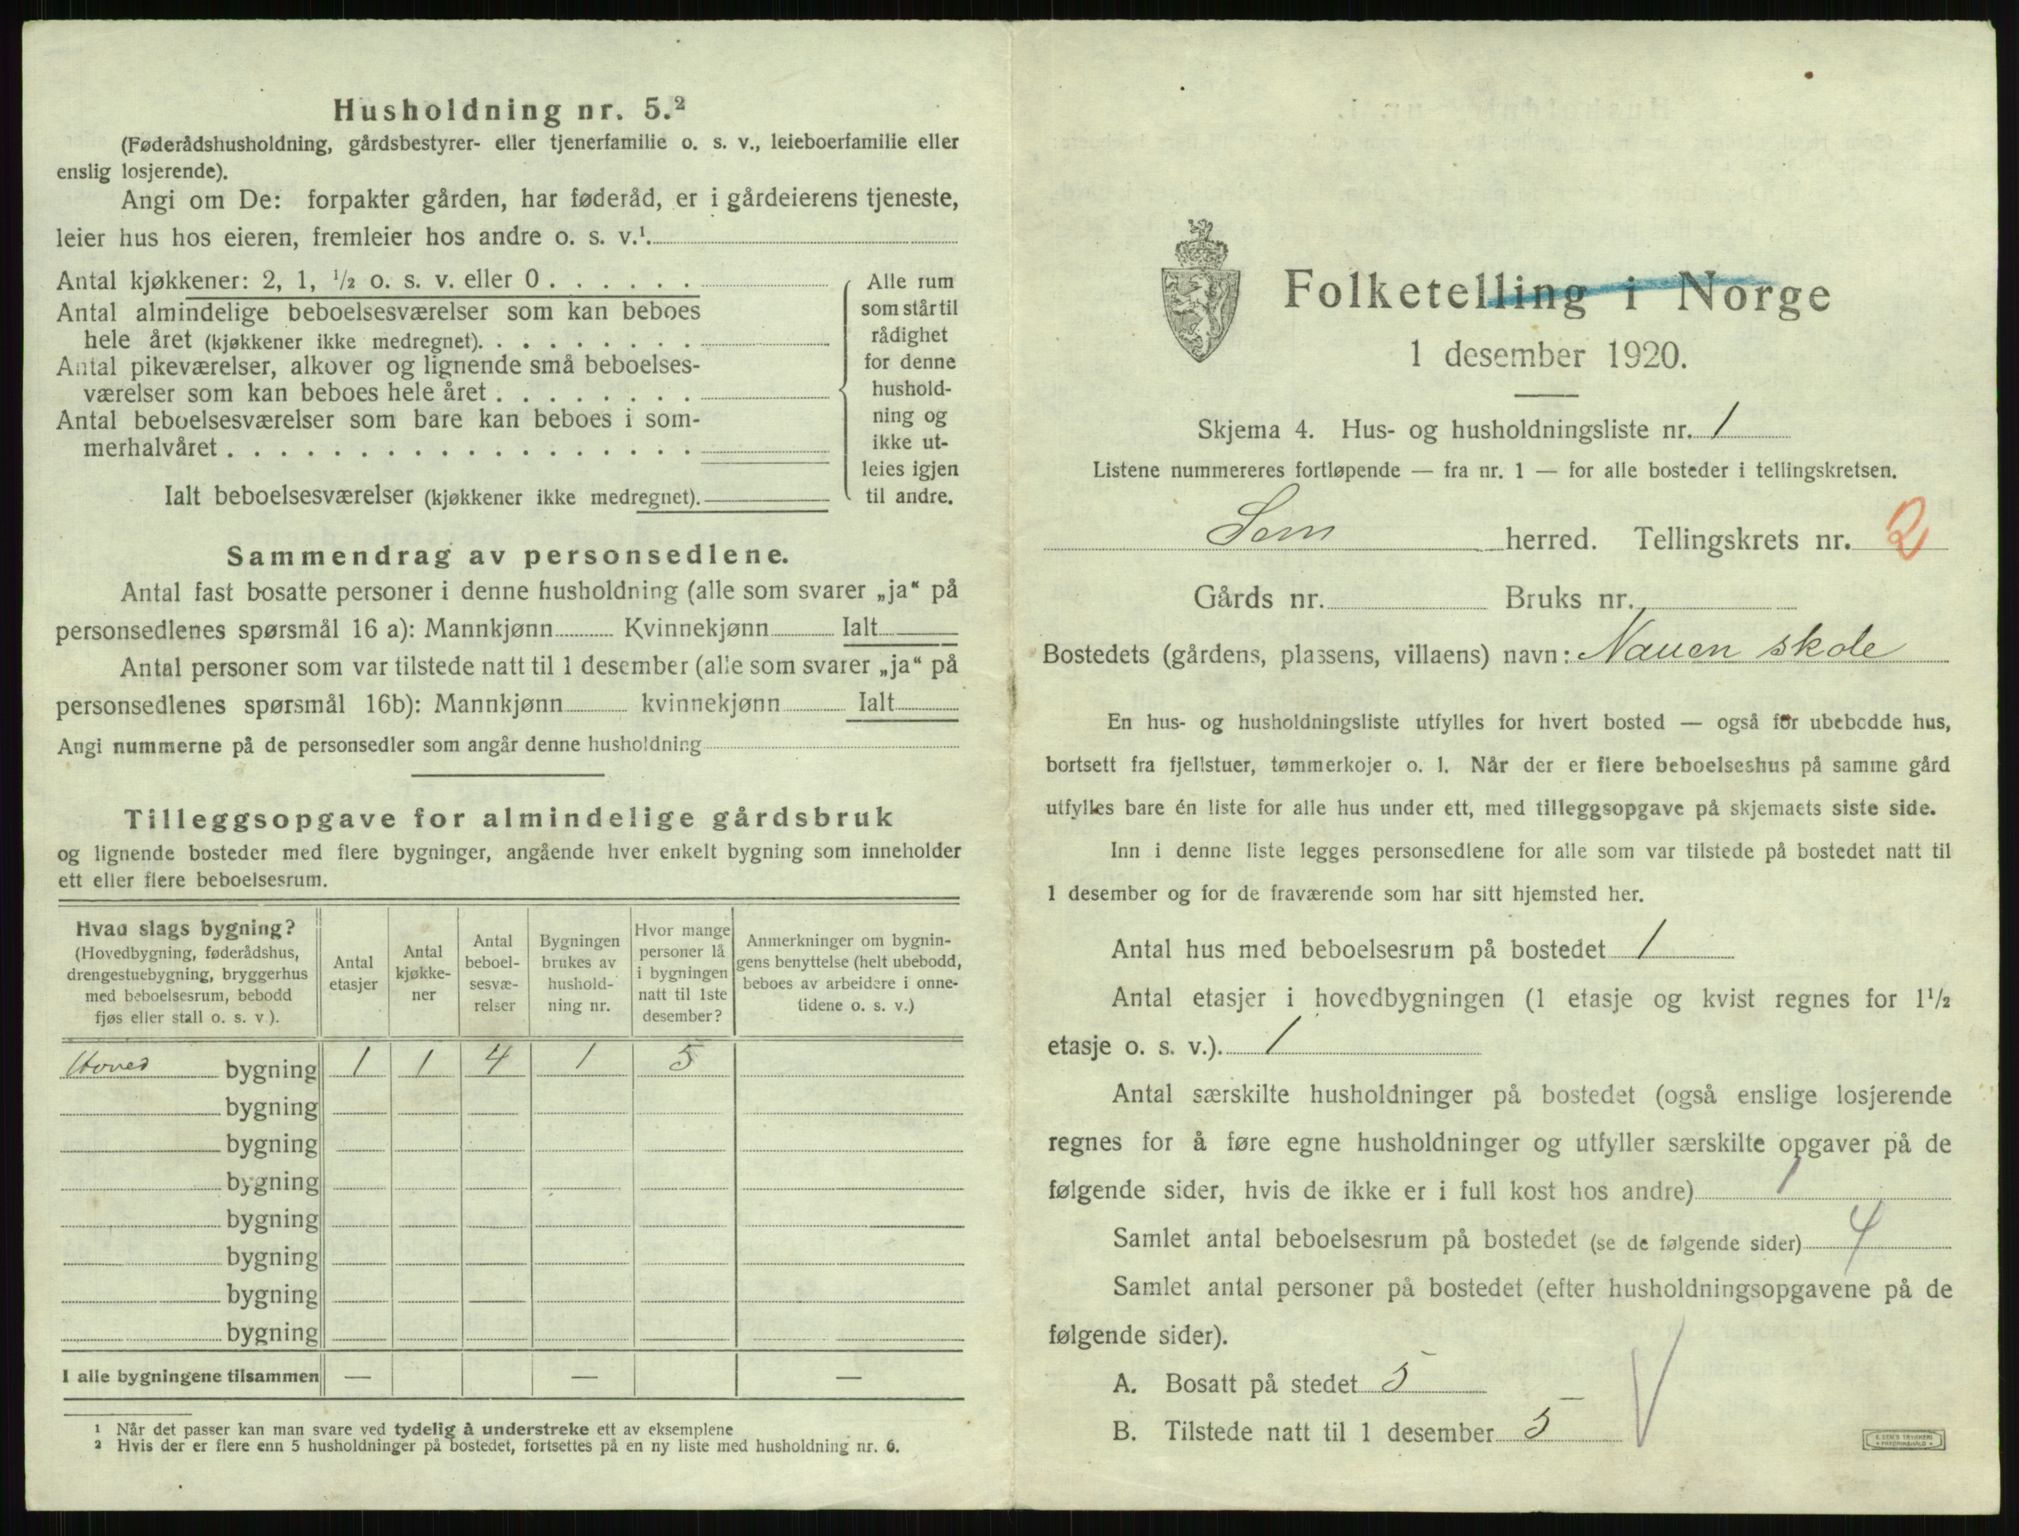 Husholdning nr. 5.²
(Føderådshusholdning, gårdsbestyrer- eller tjenerfamilie o. s. v., leieboerfamilie eller
enslig losjerende).
Angi om De: forpakter gården, har føderåd, er i gårdeierens tjeneste,
leier hus hos eieren, fremleier hos andre o. s. v.¹.
Antal kjøkkener: 2, 1, ½ o. s. v. eller 0 . . . . . .
Antal almindelige beboelsesværelser som kan beboes
hele året (kjøkkener ikke medregnet). . . . . . . . .
Antal pikeværelser, alkover og lignende små beboelses-
værelser som kan beboes hele året . . . . . . . .
Antal beboelsesværelser som bare kan beboes i som-
merhalvåret . . . . . . . . . . . . . . . . . .
Ialt beboelsesværelser (kjøkkener ikke medregnet).
Alle rum
som står til
rådighet
for denne
hushold-
ning og
ikke ut-
leies igjen
til andre.
Sammendrag av personsedlene.
Antal fast bosatte personer i denne husholdning (alle som svarer „ja“ på
personsedlenes spørsmål 16 a): Mannkjønn Kvinnekjønn Ialt
Antal personer som var tilstede natt til 1 desember (alle som svarer „ja“ på
personsedlenes spørsmål 16b): Mannkjønn kvinnekjønn Ialt
Angi nummerne på de personsedler som angår denne husholdning
Tilleggsopgave for almindelige gårdsbruk
og lignende bosteder med flere bygninger, angående hver enkelt bygning som inneholder
ett eller flere beboelsesrum.
Hvad slags bygning?
(Hovedbygning, føderådshus,
drengestuebygning, bryggerhus
med beboelsesrum, bebodd
fjøs eller stall o. s. v ).
Antal
etasjer
Antal
kjøkke-
ner
Antal
beboel-
sesvæ-
relser
Bygningen
brukes av
hushold-
ning nr.
Hvor mange
personer lå
i bygningen
natt til 1ste
desember?
Anmerkninger om bygnin-
gens benyttelse (helt ubebodd,
beboes av arbeidere i onne-
tidene o. s. v.)
Hoved bygning 1 1 4 1 5
bygning
bygning
bygning
bygning
bygning
bygning
bygning
I alle bygningene tilsammen — — —
¹ Når det passer kan man svare ved tydelig å understreke ett av eksemplene
² Hvis der er flere enn 5 husholdninger på bostedet, fortsettes på en ny liste med husholdning nr. 6.
Folketelling i Norge
1 desember 1920.
Skjema 4. Hus- og husholdningsliste nr. 1
Listene nummereres fortløpende — fra nr. 1 — for alle bosteder i tellingskretsen.
Sem herred. Tellingskrets nr. 2
Gårds nr. Bruks nr.
Bostedets (gårdens, plassens, villaens) navn: Nauen skole
En hus- og husholdningsliste utfylles for hvert bosted — også for ubebodde hus,
bortsett fra fjellstuer, tømmerkojer o. l. Når der er flere beboelseshus på samme gård
utfylles bare én liste for alle hus under ett, med tilleggsopgave på skjemaets siste side.
Inn i denne liste legges personsedlene for alle som var tilstede på bostedet natt til
1 desember og for de fraværende som har sitt hjemsted her.
Antal hus med beboelsesrum på bostedet 1
Antal etasjer i hovedbygningen (1 etasje og kvist regnes for 1½
etasje o. s. v.). 1
Antal særskilte husholdninger på bostedet (også enslige losjerende
regnes for å føre egne husholdninger og utfyller særskilte opgaver på de
følgende sider, hvis de ikke er i full kost hos andre) 1
Samlet antal beboelsesrum på bostedet (se de følgende sider) 4
Samlet antal personer på bostedet (efter husholdningsopgavene på de
følgende sider).
A. Bosatt på stedet 5
B. Tilstede natt til 1 desember 5